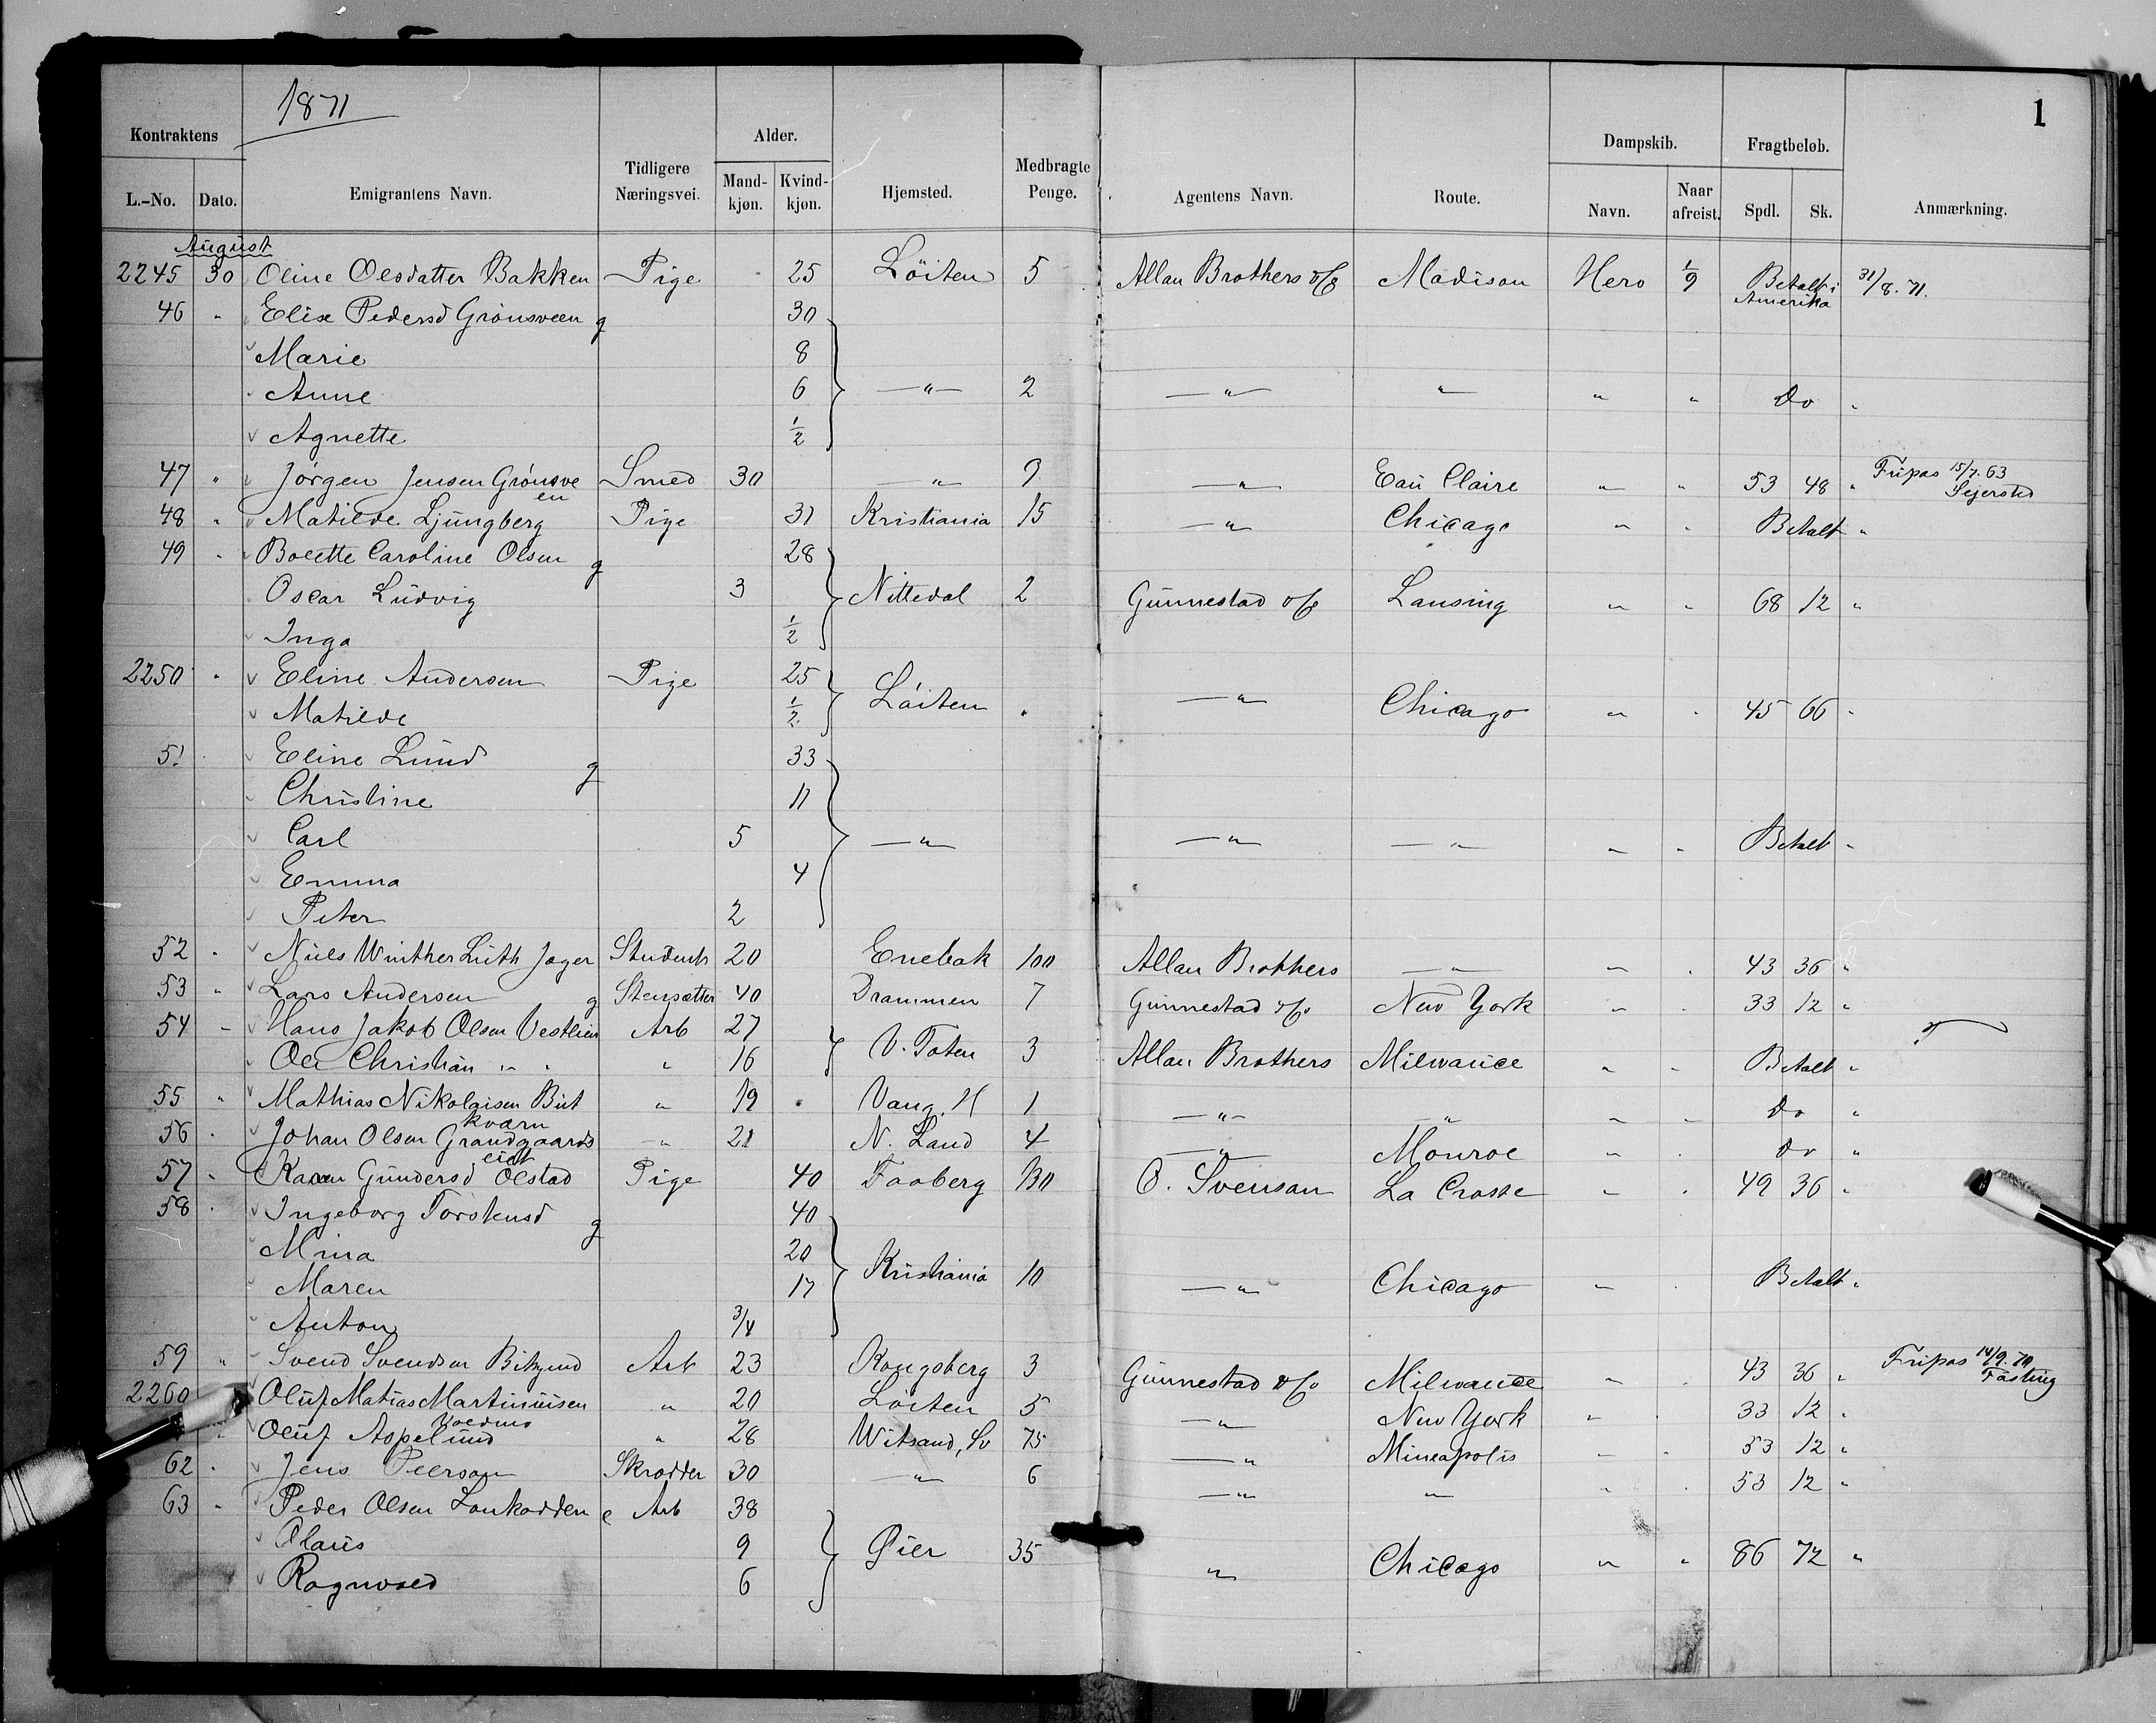 1871
1
Kontraktens Alder. Dampskib. Fragtbeløb.
L.-No. Dato. Emigrantens Navn. Tidligere Næringsvei. Mand-kjøn. Kvind-kjøn. Hjemsted. Medbragte Penge. Agentens Navn. Route. Navn. Naar afreist. Spdl. Sk. Anmærkning.
August
2245 30 Oline Olsdatter Bakken Pige 25 Löiten 5 Allan Brothers & Co Madison Hero 1/9 Betalt i Amerika 31/8. 71.
46 " Elise Pedersd Grönsveen g 30
Marie 8
Anne 6 —"— 2 —"— " " " Do "
Agnette 1/2
47 " Jörgen Jensen Grönsveen Smed 30 —"— 9 —"— Eau Claire " " 53 48 " Fripas 15/7. 63 Sejersted
48 " Matilde Ljungberg Pige 31 Kristiania 15 —"— Chicago " " Betalt "
49 " Bolette Caroline Olsen g 28
Oscar Ludvig 3 Nittedal 2 Gunnestad & Co Lansing " " 68 12 "
Inga 1/2
2250 " Eline Andersen Pige 25
Matilde 1/2 Löiten " —"— Chicago " " 45 66 "
51 Eline Lund g 33
Christine 11
Carl 5 —"— —"— —"— " " Betalt "
Emma 4
Peter 2
52 " Niels Winther Luth Jager Student 20 Enebak 100 Allan Brothers —"— " " 43 36 "
53 " Lars Andersen g Stensætter 40 Drammen 7 Gunnestad & Co New York " " 33 12 "
54 " Hans Jakob Olsen Vestlien Arb 27
Ole Christian " " " 16 V. Toten 3 Allan Brothers Milwauce " " Betalt "
55 " Mathias Nikolaisen Butkværn " 19 Vang. H 1 —"— " " " Do "
56 " Johan Olsen Grandgaardseiet " 21 N. Land 4 —"— Monroe " " Do "
57 " Karen Gundersd Olstad Pige 40 Faaberg 130 O. Svensan La Crosse " " 49 36 "
58 " Ingeborg Torstensd g 40
Mina 20
Maren 17 Kristiania 10 —"— Chicago " " Betalt "
Anton 3/4
59 " Svend Svendsen Arb 23 Kongsberg 3 Gunnestad & Co Milwauce " " 43 36 " Fripas 14/9. 70 Fasting
2260 Oluf Matias Martiniusen " 20 Löiten 5 —"— New York " " 33 12 "
Oluf Aspelund " 28 Witsand, Sv 75 —"— Mineapolis " " 53 12 "
62 " Jens Peerson Skrædder 30 —"— 6 —"— " " " 53 12 "
63 " Peder Olsen Lonkodden e Arb 38
Olaus 9 Øier 35 " Chicago " " 86 72 "
Ragnvald 6